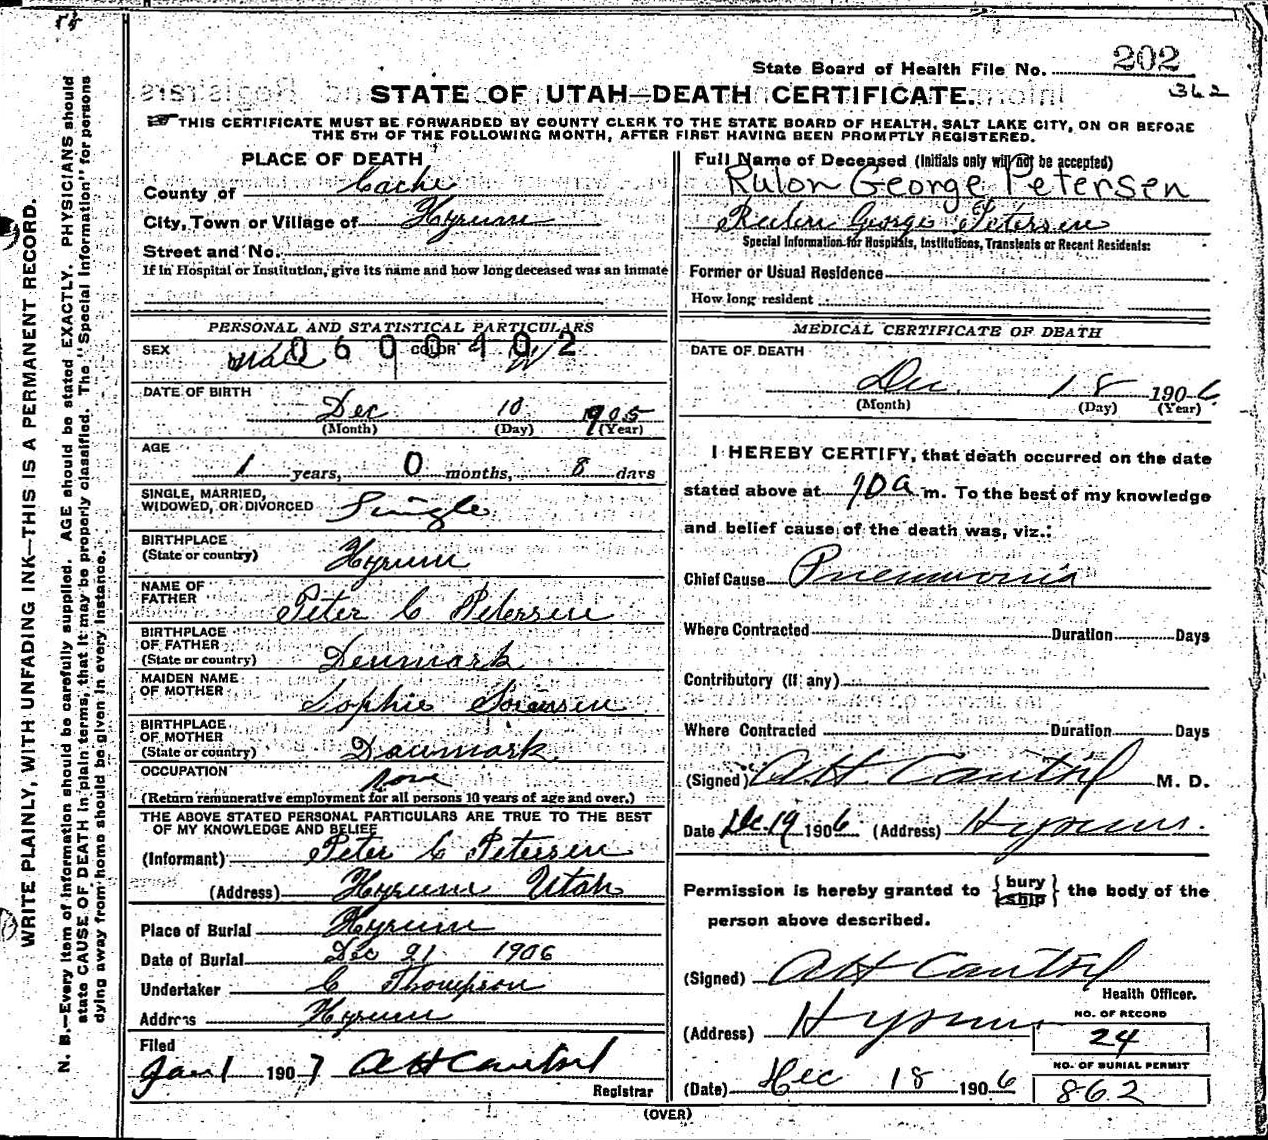 State Board of Health File No. 202
362
STATE OF UTAH—DEATH CERTIFICATE.
THIS CERTIFICATE MUST BE FORWARDED BY COUNTY CLERK TO THE STATE BOARD OF HEALTH, SALT LAKE CITY, ON OR BEFORE
THE 5TH OF THE FOLLOWING MONTH, AFTER FIRST HAVING BEEN PROMPTLY REGISTERED.
WRITE PLAINLY, WITH UNFADING INK—THIS IS A PERMANENT RECORD.
N. B.—Every item of information should be carefully supplied. AGE should be stated EXACTLY. PHYSICIANS should
state CAUSE OF DEATH in plain terms, that it may be properly classified. The "Special Information" for persons
dying away from home should be given in every instance.
PLACE OF DEATH
County of Cache
City, Town or Village of Hyrum
Street and No.
If in Hospital or Institution, give its name and how long deceased was an inmate
PERSONAL AND STATISTICAL PARTICULARS
0600402
SEX Male COLOR W
DATE OF BIRTH
Dec 10 1905
(Month) (Day) (Year)
AGE
1 years, 0 months, 8 days
SINGLE, MARRIED,
WIDOWED, OR DIVORCED Single
BIRTHPLACE
(State or country) Hyrum
NAME OF
FATHER Peter C Petersen
BIRTHPLACE
OF FATHER
(State or country) Denmark
MAIDEN NAME
OF MOTHER Sophie Sorensen
BIRTHPLACE
OF MOTHER
(State or country) Danmark
OCCUPATION none
(Return remunerative employment for all persons 10 years of age and over.)
THE ABOVE STATED PERSONAL PARTICULARS ARE TRUE TO THE BEST
OF MY KNOWLEDGE AND BELIEF
(Informant) Peter C Petersen
(Address) Hyrum Utah
Place of Burial Hyrum
Date of Burial Dec 21 1906
Undertaker C Thompson
Address Hyrum
Filed
Jan 1 1907 A H Cantril
Registrar
Full Name of Deceased (Initials only will not be accepted)
Rulon George Petersen
Rulon George Petersen
Special Information for Hospitals, Institutions, Transients or Recent Residents:
Former or Usual Residence
How long resident
MEDICAL CERTIFICATE OF DEATH
DATE OF DEATH
Dec. 18 1906
(Month) (Day) (Year)
I HEREBY CERTIFY, that death occurred on the date
stated above at 10 a m. To the best of my knowledge
and belief cause of the death was, viz.:
Chief Cause Pneumonia
Where Contracted Duration Days
Contributory (if any)
Where Contracted Duration Days
(Signed) A H Cantril M. D.
Date Dec 19 1906 (Address) Hyrum.
Permission is hereby granted to {bury ship} the body of the
person above described.
(Signed) A H Cantril
Health Officer.
(Address) Hyrum
NO. OF RECORD
24
NO. OF BURIAL PERMIT
862
(Date) Dec 18 1906
(OVER)